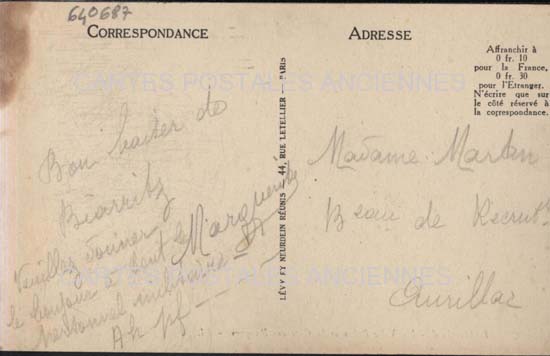 640687
CORRESPONDANCE
ADRESSE
Affranchir à
0 fr. 10
pour la France,
0 fr. 30
pour l'Etranger.
N'écrire que sur
le côté réservé à
la correspondance.
CARTES POSTALES ANCIENNES
LÉVY ET NEURDEIN RÉUNIS — 44, RUE LETELLIER — PARIS
Bon baiser de
Biarritz
Marguerite
Veuillez donner
le bonjour à tout le
personnel
Madame Martin
Beau de Recrut
Aurillac
CARTES POSTALES ANCIENNES